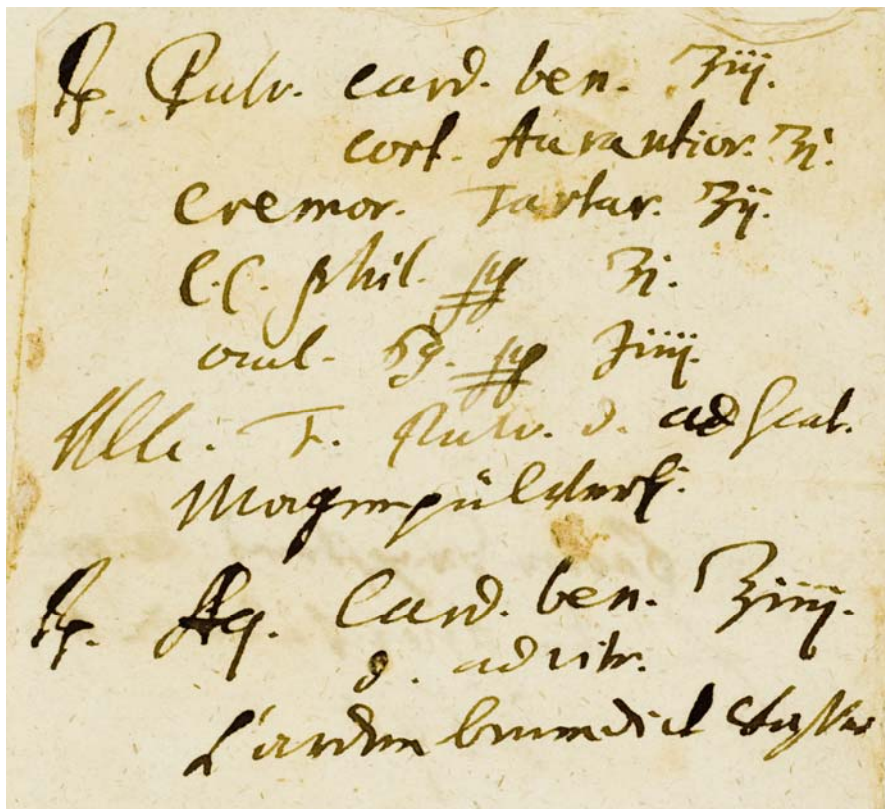 Rp. Pulv. Card. ben. ʒiij.
cort. Aurantior. ʒi.
Cremor. Tartar. ʒij.
C.C. phil. ppp ʒi.
ocul. 69. ppp ʒiiij.
Misc. F. Pulv. d. ad scat.
Magenpülverl:
Rp. Aq. Card. ben. ʒiiij.
d. ad vitr.
Carden benedict